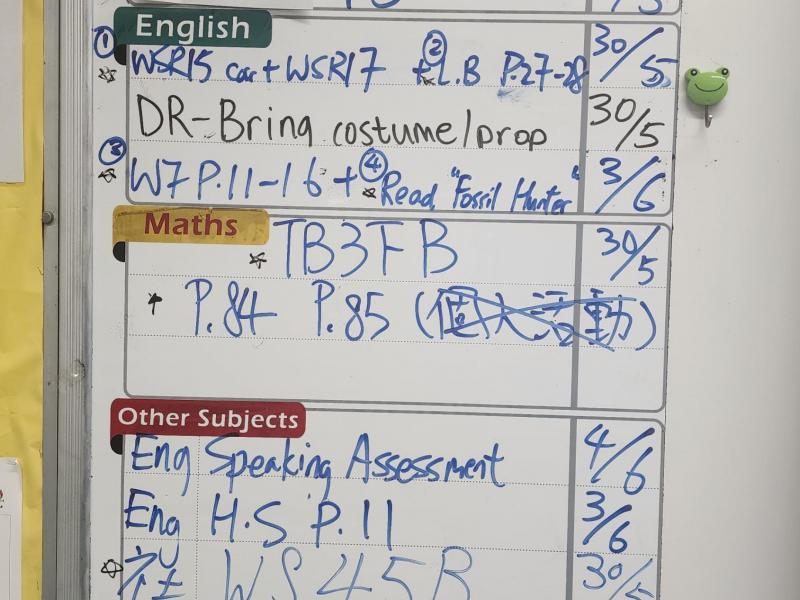 English
① WSR15 cor + WSR17 + ② L.B P.27-28 30/5
DR-Bring costume/prop 30/5
③ W7 P.11-16 + ④ Read "Fossil Hunter" 3/6
Maths
TB3FB 30/5
P.84 P.85 (個人活動)
Other Subjects
Eng Speaking Assessment 4/6
Eng H.S P.11 3/6
社 WS45B 30/5